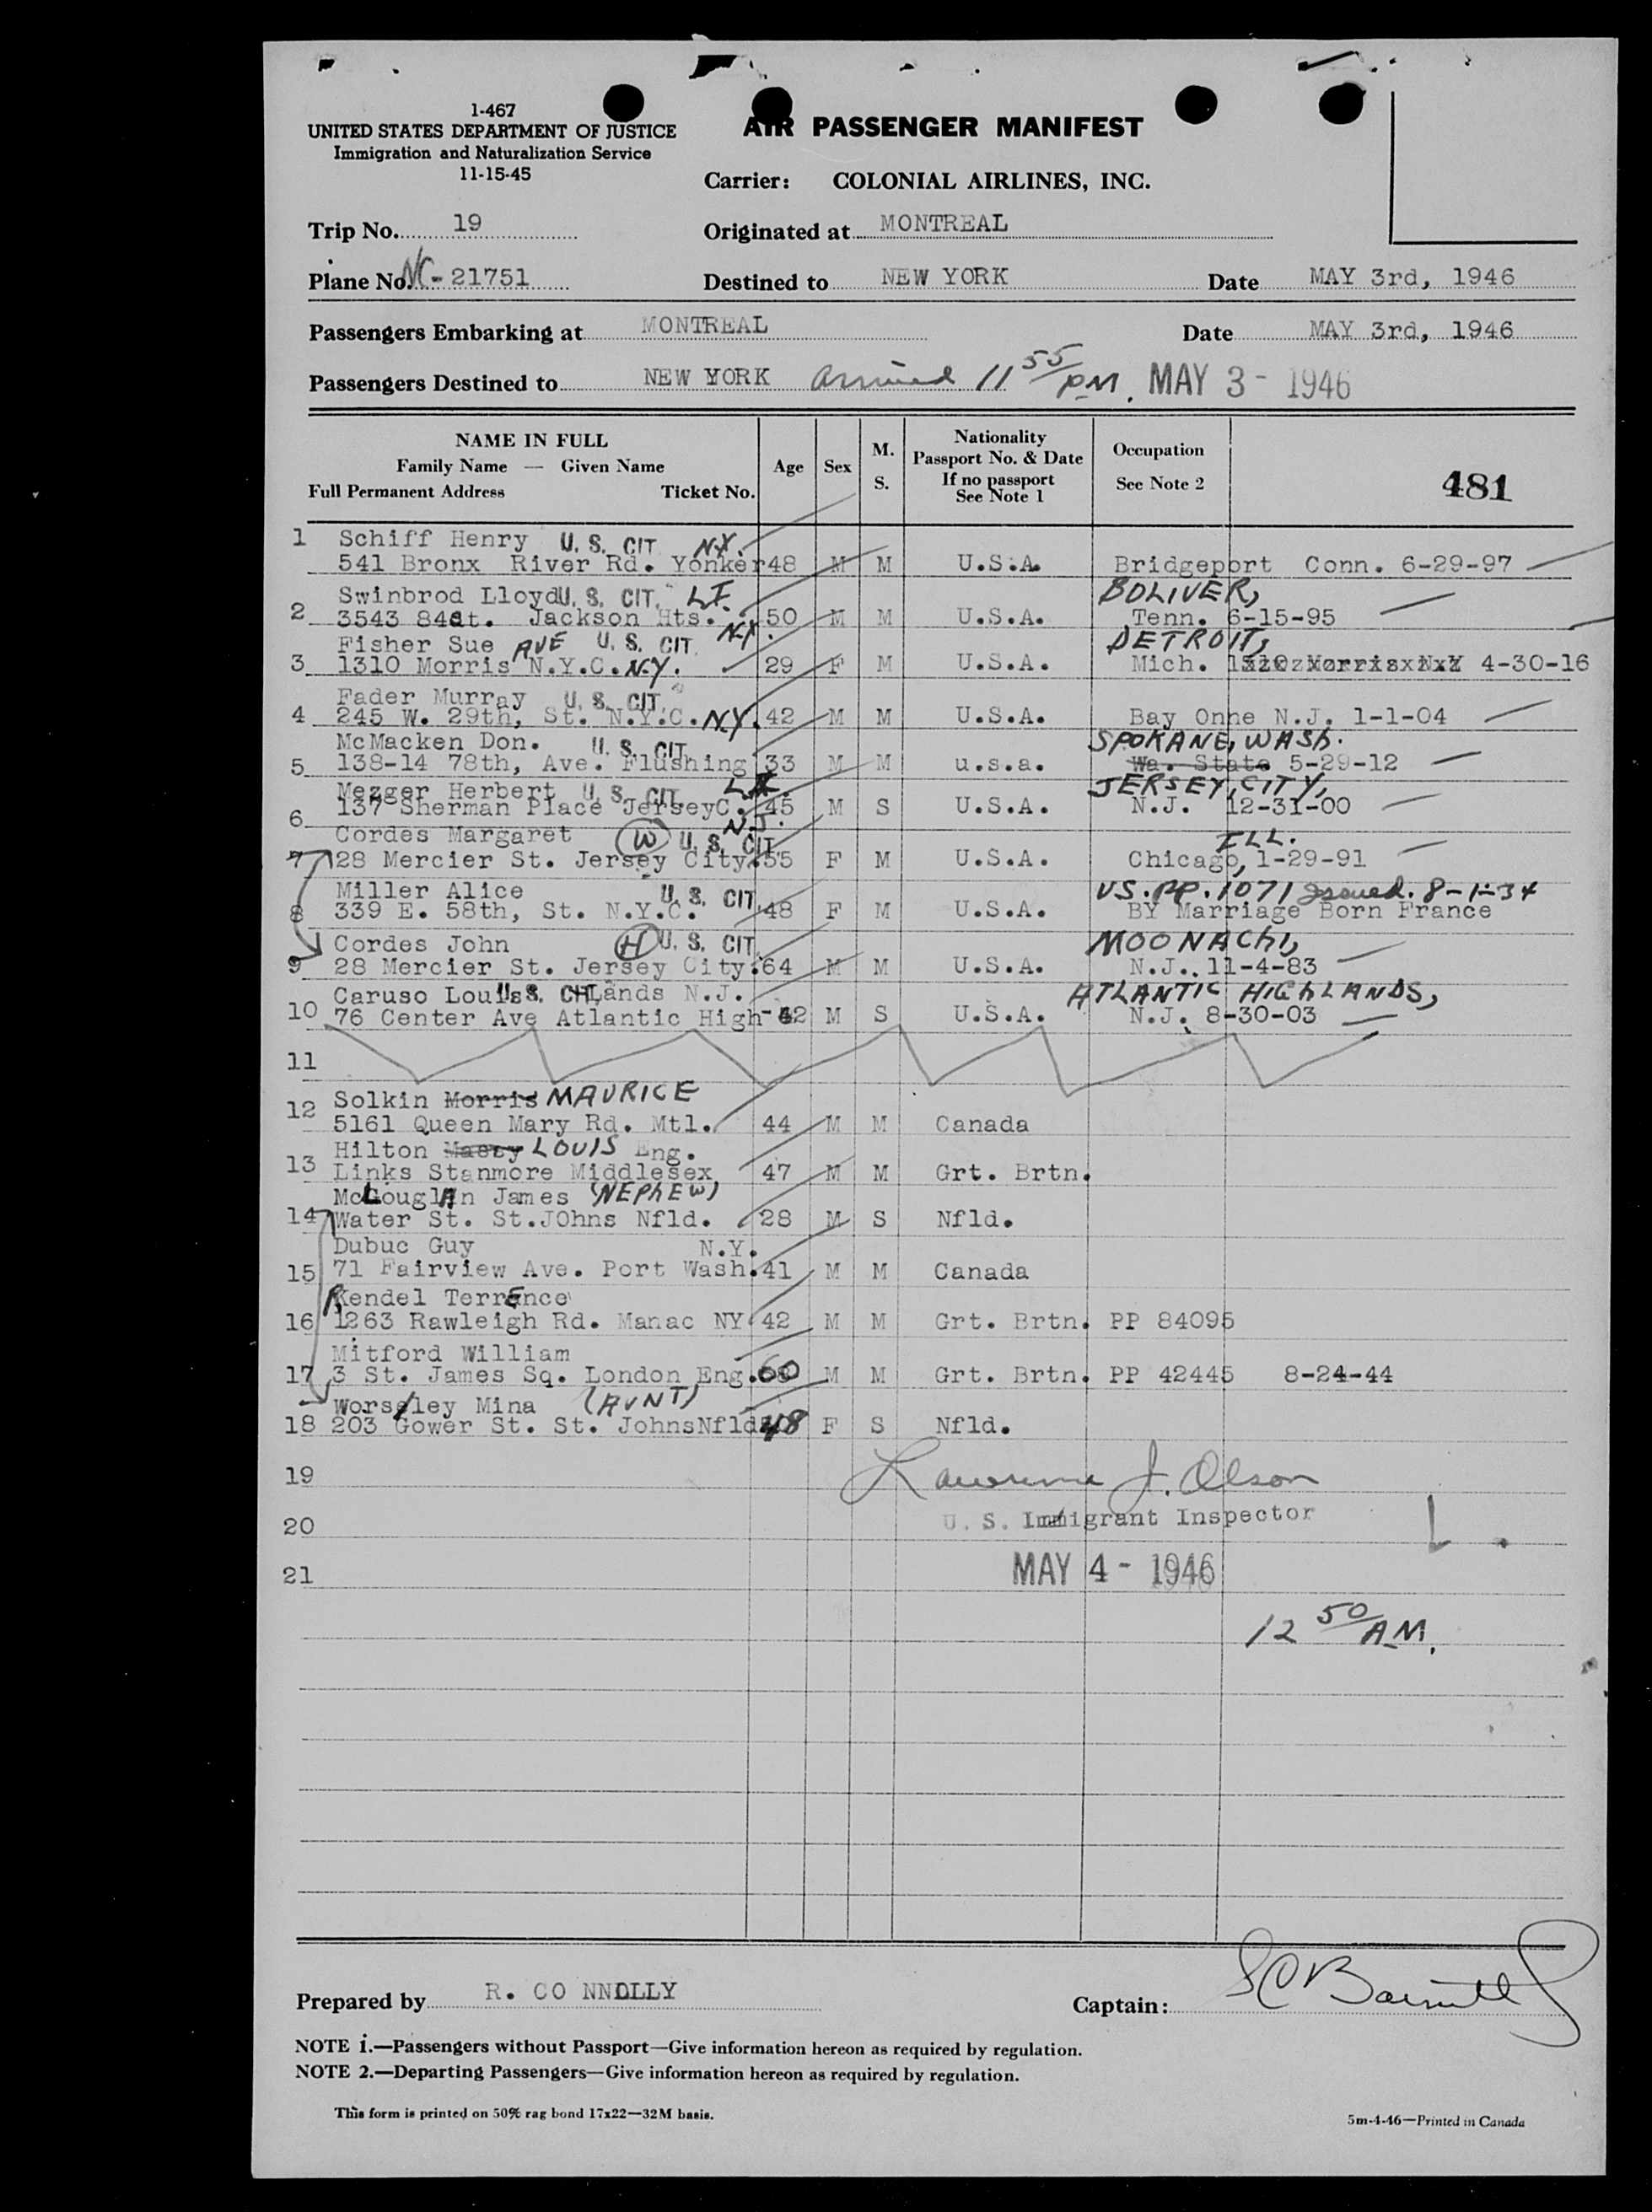 1-467
UNITED STATES DEPARTMENT OF JUSTICE
Immigration and Naturalization Service
11-15-45
AIR PASSENGER MANIFEST
Carrier: COLONIAL AIRLINES, INC.
Trip No. 19 Originated at MONTREAL
Plane No. NC-21751 Destined to NEW YORK Date MAY 3rd, 1946
Passengers Embarking at MONTREAL Date MAY 3rd, 1946
Passengers Destined to NEW YORK arrived 11 55/PM. MAY 3 - 1946
NAME IN FULL
Family Name — Given Name
Full Permanent Address Ticket No.
Age Sex M. S.
Nationality
Passport No. & Date
If no passport
See Note 1
Occupation
See Note 2
481
1 Schiff Henry U. S. CIT. N.Y.
541 Bronx River Rd. Yonker 48 M M U.S.A. Bridgeport Conn. 6-29-97
Swinbrod Lloyd U. S. CIT. L.I. BOLIVER,
2 3543 84st. Jackson Hts. N.Y. 50 M M U.S.A. Tenn. 6-15-95
Fisher Sue AVE U. S. CIT. DETROIT,
3 1310 Morris N.Y.C. N.Y. 29 F M U.S.A. Mich. 4-30-16
Fader Murray U. S. CIT.
4 245 W. 29th, St. N.Y.C. N.Y. 42 M M U.S.A. Bay Onne N.J. 1-1-04
McMacken Don. U. S. CIT SPOKANE, WASh.
5 138-14 78th, Ave. Flushing 33 M M u.s.a. Wa. State 5-29-12
Mezger Herbert U. S. CIT. L.I. JERSEY, CITY,
6 137 Sherman Place JerseyC. N.J. 45 M S U.S.A. N.J. 12-31-00
Cordes Margaret (W) U. S. CIT ILL.
7 28 Mercier St. Jersey City. 55 F M U.S.A. Chicago, 1-29-91
Miller Alice U. S. CIT. US. PP. 1071 Issued. 8-1-34
8 339 E. 58th, St. N.Y.C. 48 F M U.S.A. BY Marriage Born France
Cordes John (H) U. S. CIT. MOONAChi,
9 28 Mercier St. Jersey City. 64 M M U.S.A. N.J.. 11-4-83
Caruso Louis U. S. CIT. lands N.J. ATLANTIC HIGhLANDS,
10 76 Center Ave Atlantic High- 42 M S U.S.A. N.J. 8-30-03
11
12 Solkin Morris MAURICE
5161 Queen Mary Rd. Mtl. 44 M M Canada
Hilton LOUIS Eng.
13 Links Stanmore Middlesex 47 M M Grt. Brtn.
McLouglAn James (NEPhEW)
14 Water St. St.JOhns Nfld. 28 M S Nfld.
Dubuc Guy N.Y.
15 71 Fairview Ave. Port Wash. 41 M M Canada
Rendel TerrEnce
16 1263 Rawleigh Rd. Manac NY 42 M M Grt. Brtn. PP 84095
Mitford William
17 3 St. James Sq. London Eng. 60 M M Grt. Brtn. PP 42445 8-24-44
Worsley Mina (AUNT)
18 203 Gower St. St. JohnsNfld 48 F S Nfld.
19 Lawrence J. Olson
20 U. S. Immigrant Inspector
21 MAY 4 - 1946
12 50/AM.
Prepared by R. CO NNOLLY Captain:
NOTE 1.—Passengers without Passport—Give information hereon as required by regulation.
NOTE 2.—Departing Passengers—Give information hereon as required by regulation.
This form is printed on 50% rag bond 17x22—32M basis.
5m-4-46—Printed in Canada